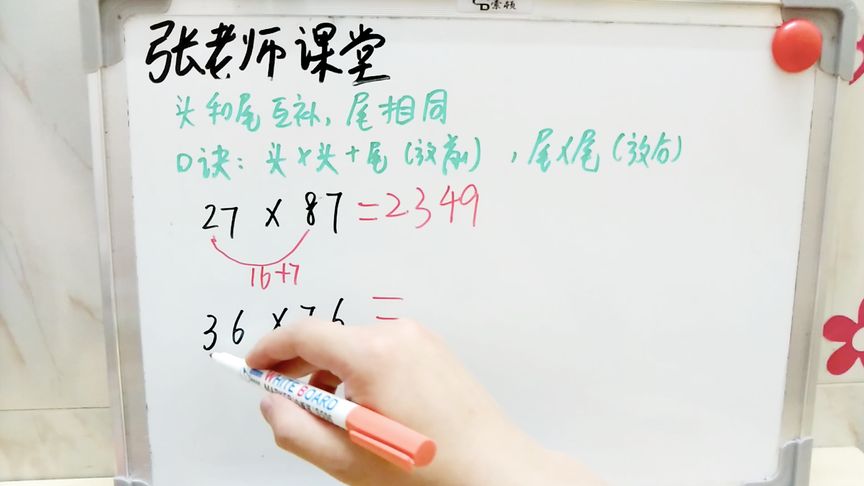 索顿
张老师课堂
头和尾互补，尾相同
口诀：头×头+尾（放前），尾×尾（放后）
27 × 87 = 2349
16+7
36 × 76 =
WHITE BOARD